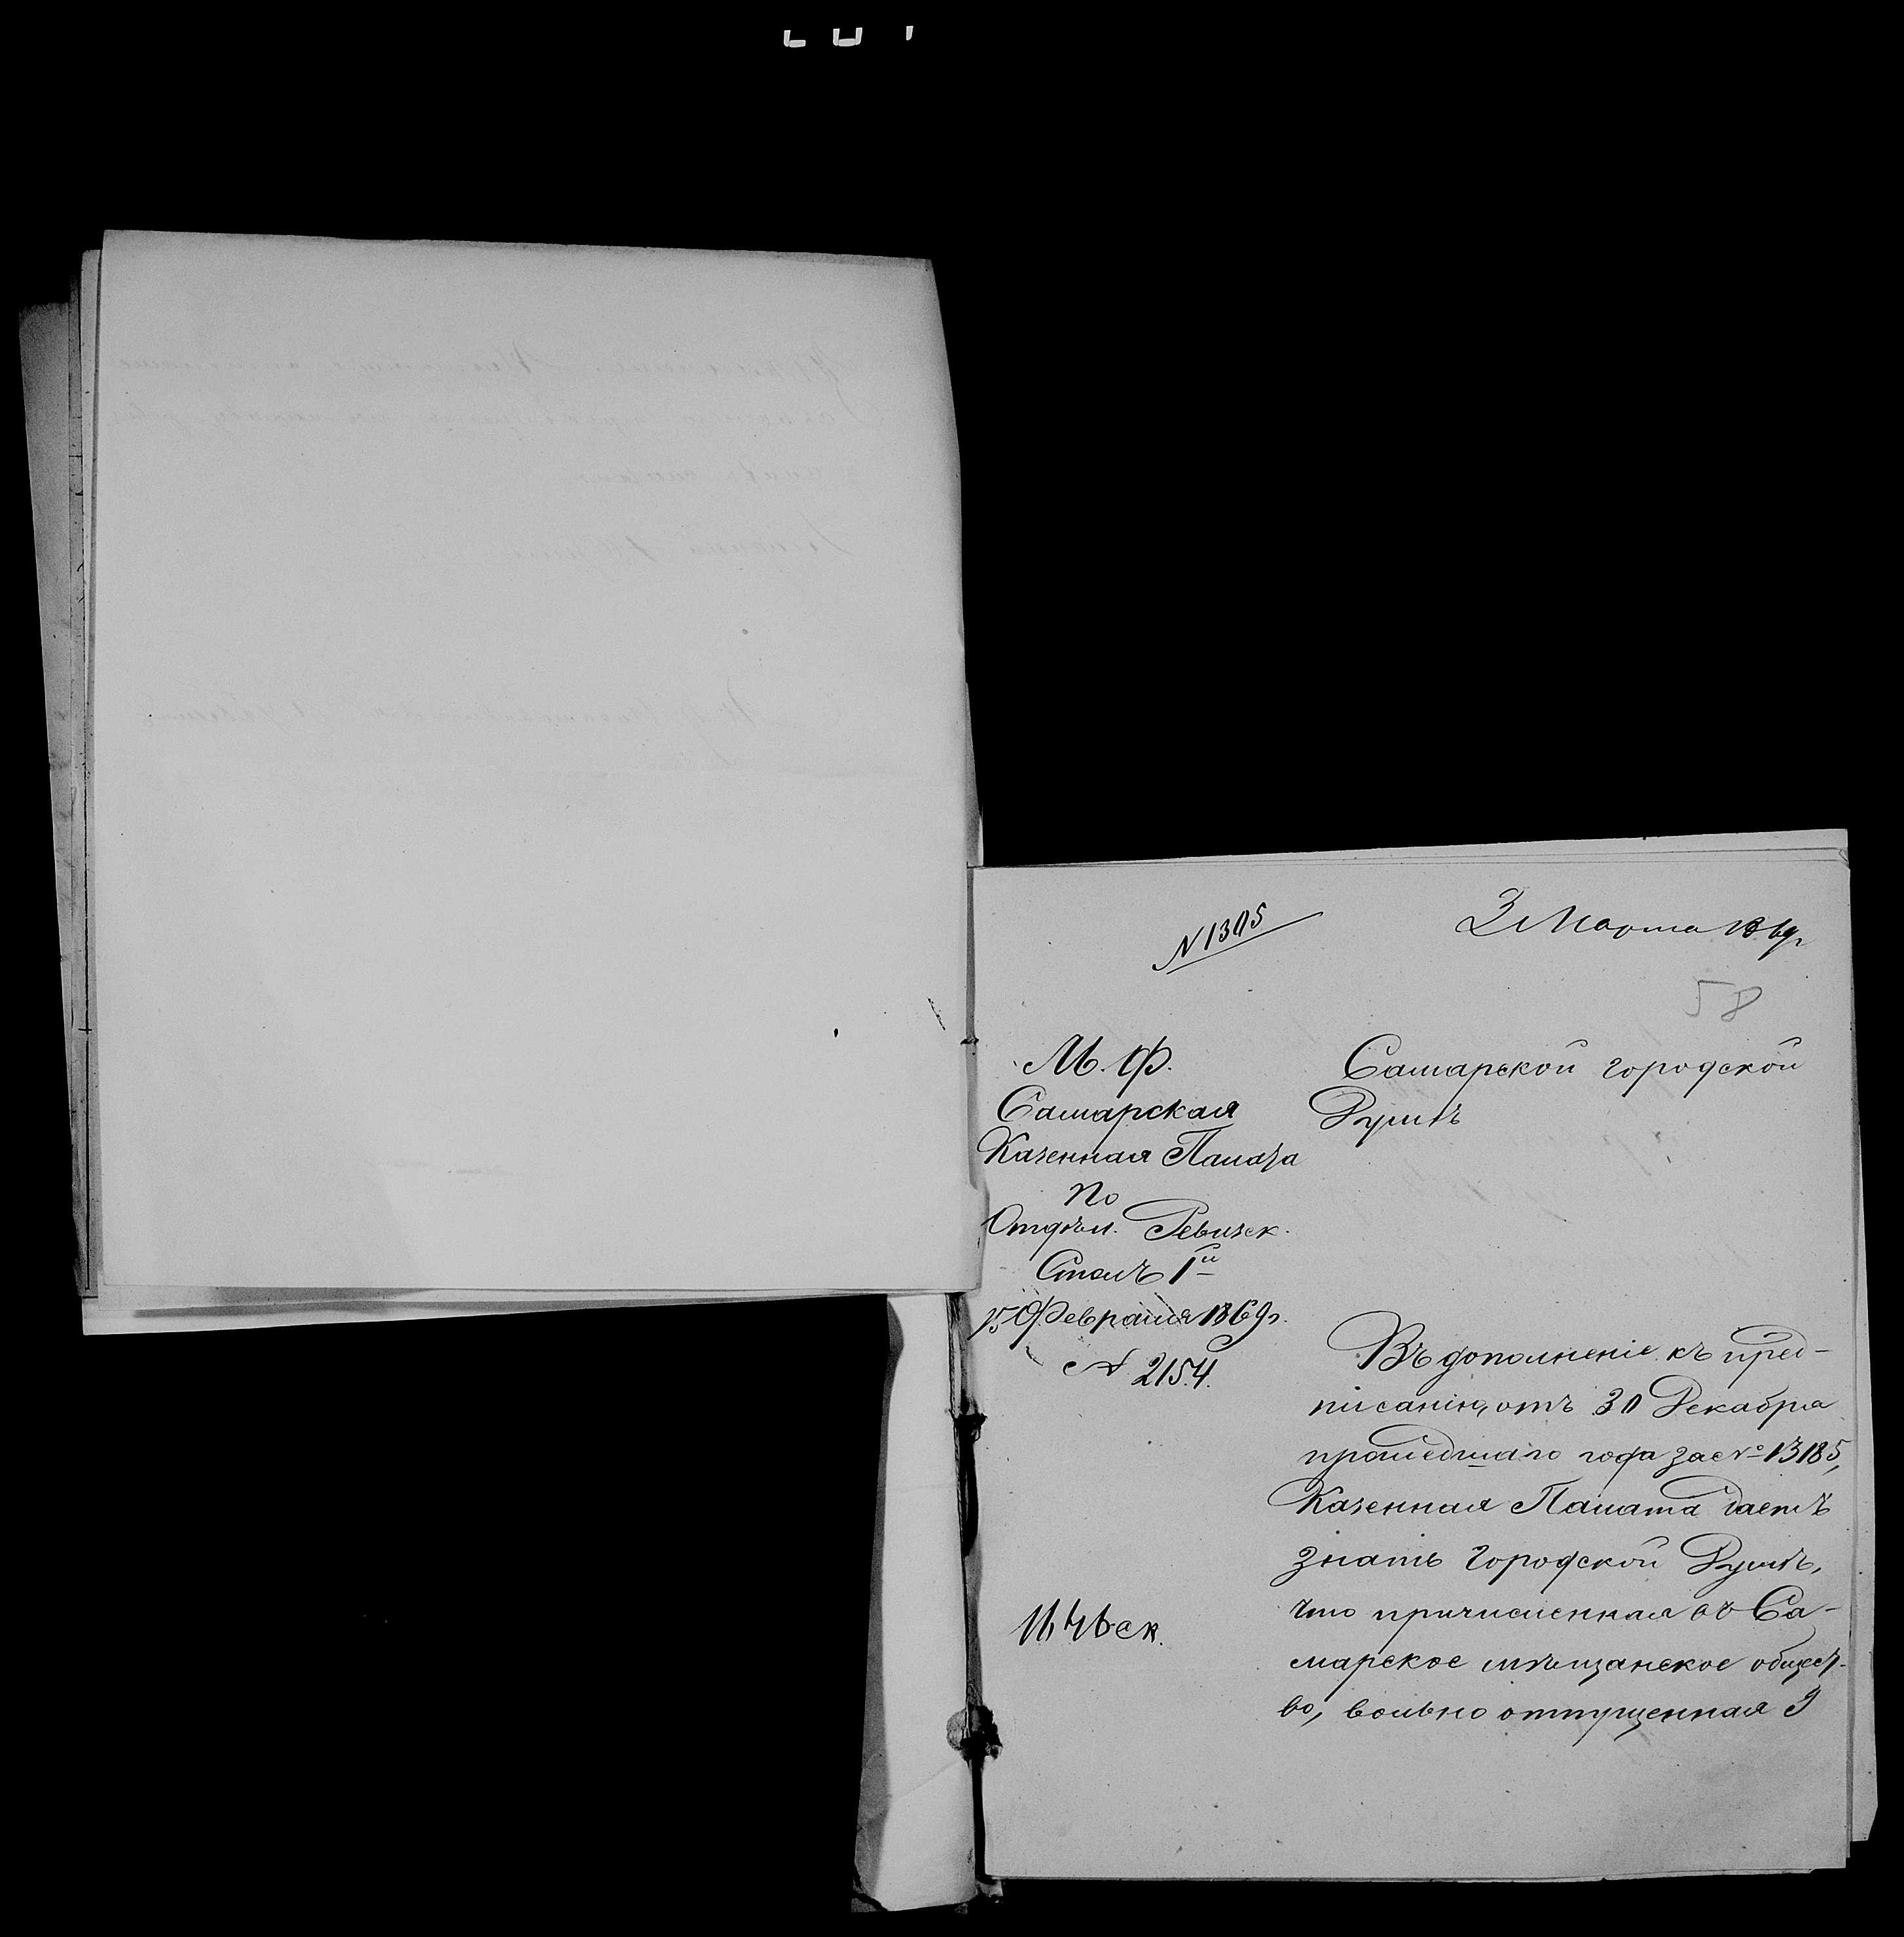 N 1305
3 Марта 1869 г
58
М. Ф.
Самарская
Казенная Палата
по
Отдѣл. Ревизск.
Столъ 1й
Февраля 1869 г.
№ 2154.
Самарской городской
Думѣ
Въ дополненіе къ пред-
писанію, отъ 30 Декабря
прошедшаго года за № 13185,
Казенная Палата даетъ
знать Городской Думѣ,
что причисленная въ Са-
марское мѣщанское общест-
во, вольно отпущенная